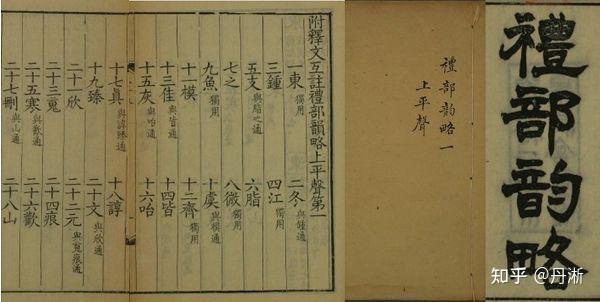 禮部韵略
禮部韵略一
上平聲
附釋文互註禮部韻略上平聲第一
一東獨用 二冬與鍾通
三鍾 四江獨用
五支與脂之通 六脂
七之 八微獨用
九魚獨用 十虞與模通
十一模 十二齊獨用
十三佳與皆通 十四皆
十五灰與咍通 十六咍
十七眞與諄臻通 十八諄
十九臻 二十文與欣通
二十一欣 二十二元與䰟痕通
二十三䰟 二十四痕
二十五寒與歡通 二十六歡
二十七刪與山通 二十八山
知乎 @丹淅